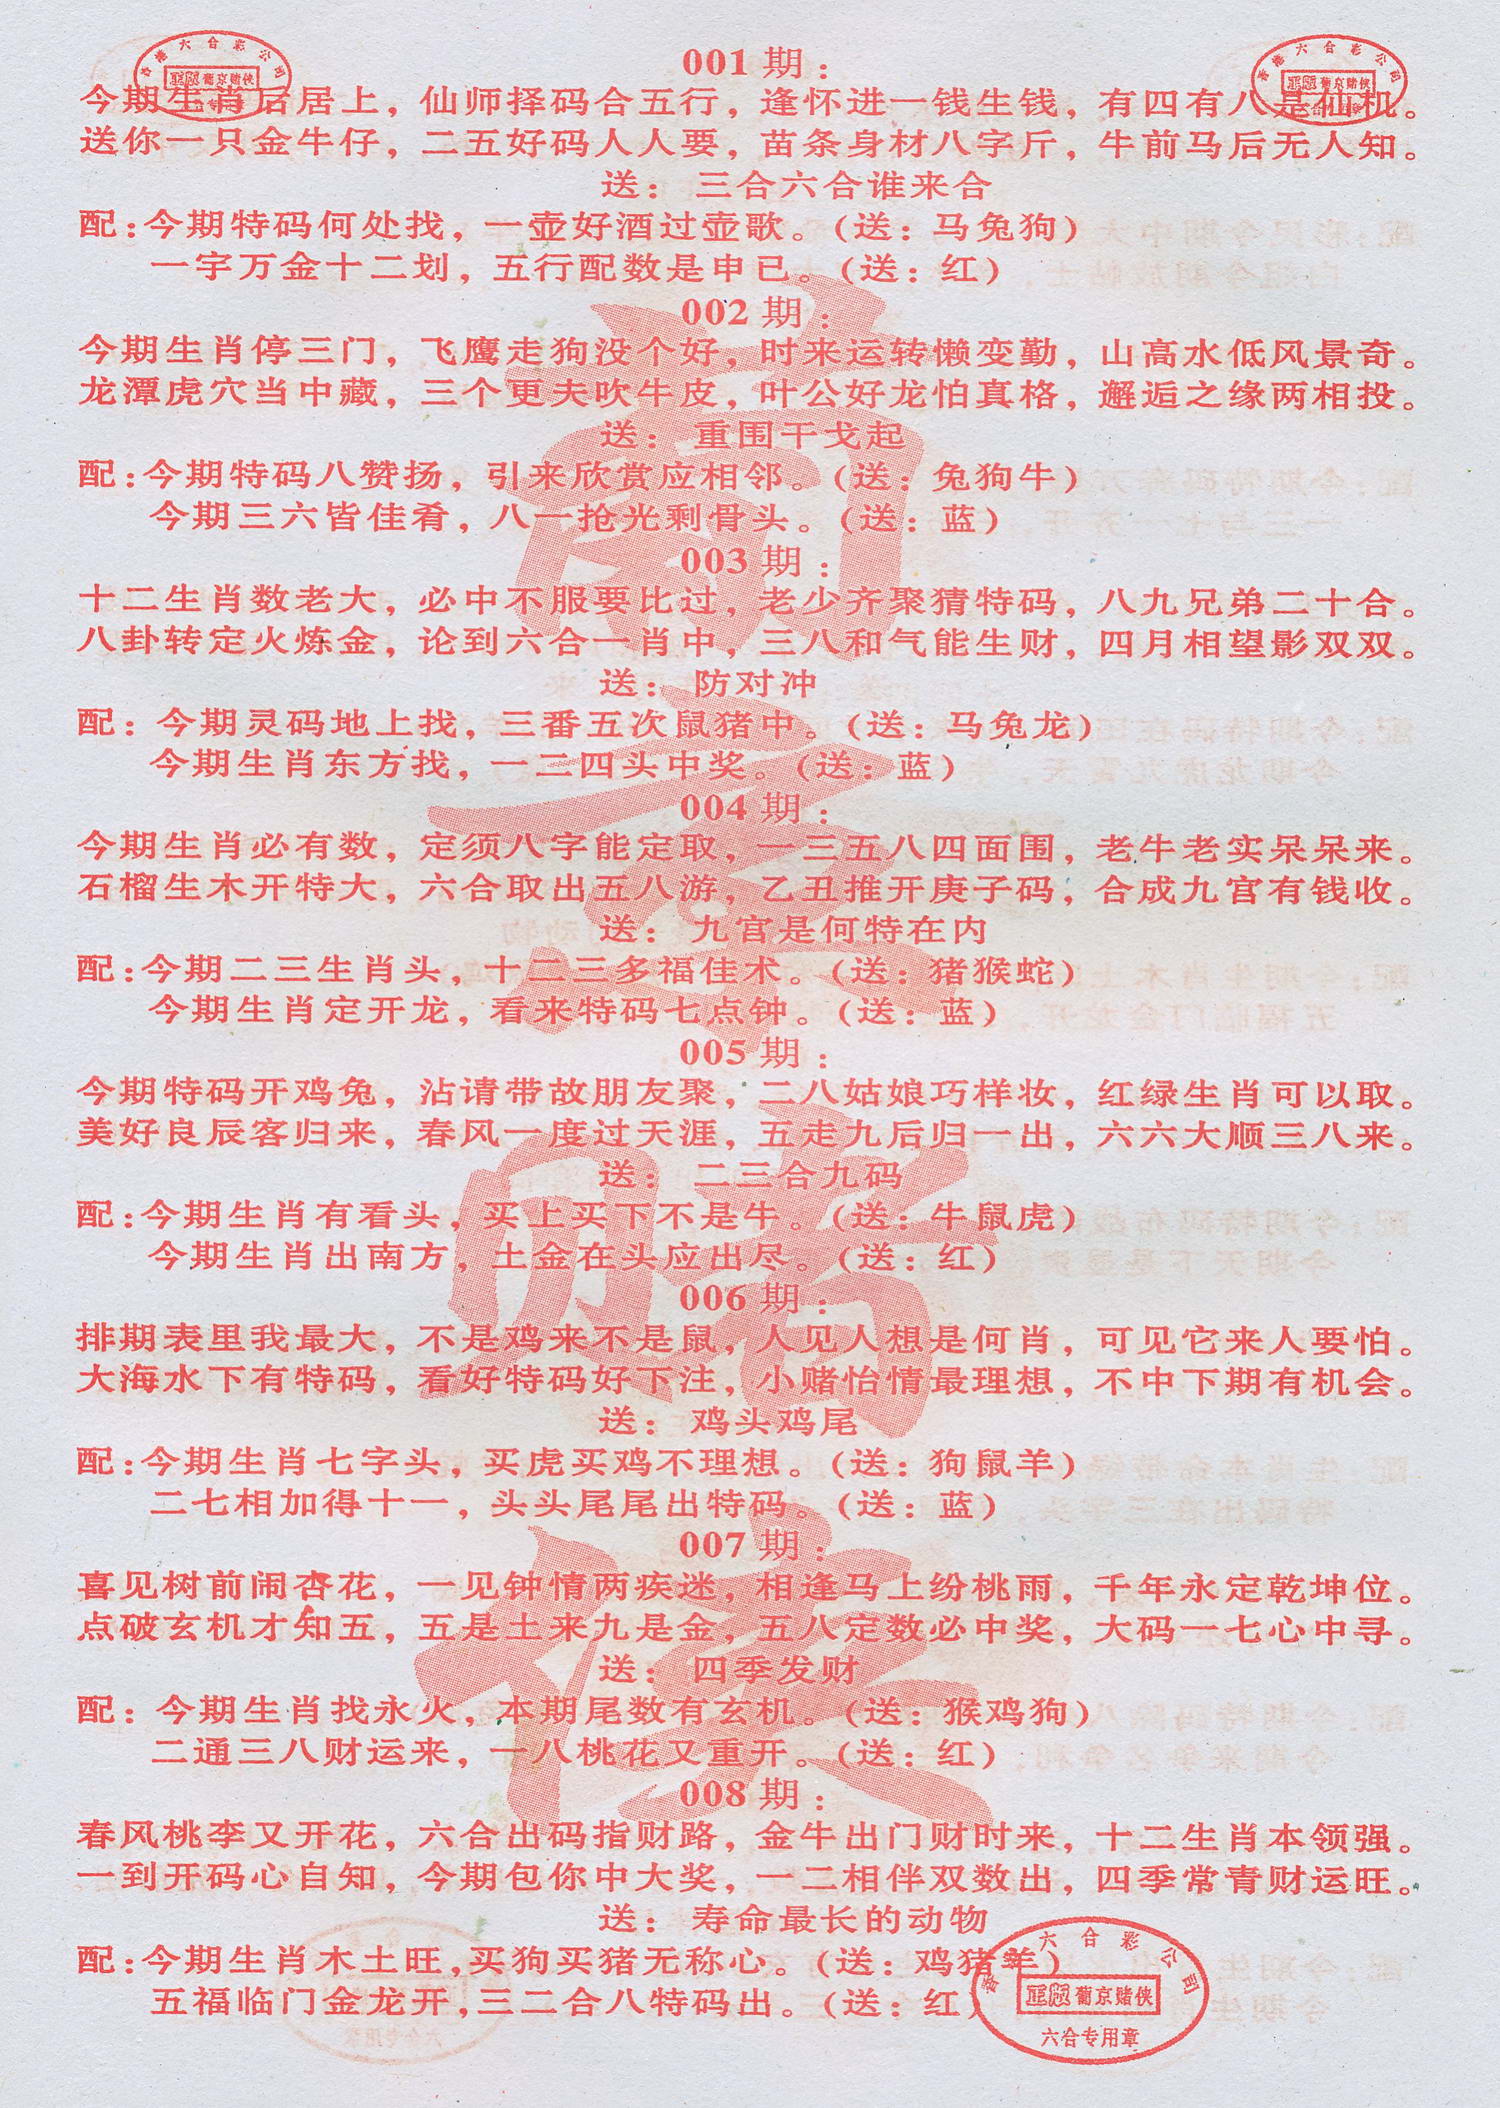 001期：
今期生肖后居上，仙师择码合五行，逢怀进一钱生钱，有四有八是仙机。
送你一只金牛仔，二五好码人人要，苗条身材八字斤，牛前马后无人知。
送：三合六合谁来合
配：今期特码何处找，一壶好酒过壶歌。（送：马兔狗）
一字万金十二划，五行配数是申已。（送：红）
002期：
今期生肖停三门，飞鹰走狗没个好，时来运转懒变勤，山高水低风景奇。
龙潭虎穴当中藏，三个更夫吹牛皮，叶公好龙怕真格，邂逅之缘两相投。
送：重围干戈起
配：今期特码八赞扬，引来欣赏应相邻。（送：兔狗牛）
今期三六皆佳肴，八一抢光剩骨头。（送：蓝）
003期：
十二生肖数老大，必中不服要比过，老少齐聚猜特码，八九兄弟二十合。
八卦转定火炼金，论到六合一肖中，三八和气能生财，四月相望影双双。
送：防对冲
配：今期灵码地上找，三番五次鼠猪中。（送：马兔龙）
今期生肖东方找，一二四头中奖。（送：蓝）
004期：
今期生肖必有数，定须八字能定取，一三五八四面围，老牛老实呆呆来。
石榴生木开特大，六合取出五八游，乙丑推开庚子码，合成九宫有钱收。
送：九宫是何特在内
配：今期二三生肖头，十二三多福佳术。（送：猪猴蛇）
今期生肖定开龙，看来特码七点钟。（送：蓝）
005期：
今期特码开鸡兔，沾请带故朋友聚，二八姑娘巧样妆，红绿生肖可以取。
美好良辰客归来，春风一度过天涯，五走九后归一出，六六大顺三八来。
送：二三合九码
配：今期生肖有看头，买上买下不是牛。（送：牛鼠虎）
今期生肖出南方，土金在头应出尽。（送：红）
006期：
排期表里我最大，不是鸡来不是鼠，人见人想是何肖，可见它来人要怕。
大海水下有特码，看好特码好下注，小赌怡情最理想，不中下期有机会。
送：鸡头鸡尾
配：今期生肖七字头，买虎买鸡不理想。（送：狗鼠羊）
二七相加得十一，头头尾尾出特码。（送：蓝）
007期：
喜见树前闹杏花，一见钟情两疾迷，相逢马上纷桃雨，千年永定乾坤位。
点破玄机才知五，五是土来九是金，五八定数必中奖，大码一七心中寻。
送：四季发财
配：今期生肖找永火，本期尾数有玄机。（送：猴鸡狗）
二通三八财运来，一八桃花又重开。（送：红）
008期：
春风桃李又开花，六合出码指财路，金牛出门财时来，十二生肖本领强。
一到开码心自知，今期包你中大奖，一二相伴双数出，四季常青财运旺。
送：寿命最长的动物
配：今期生肖木土旺，买狗买猪无称心。（送：鸡猪羊）
五福临门金龙开，三二合八特码出。（送：红）
香港六合彩公司
葡京赌侠
六合专用章